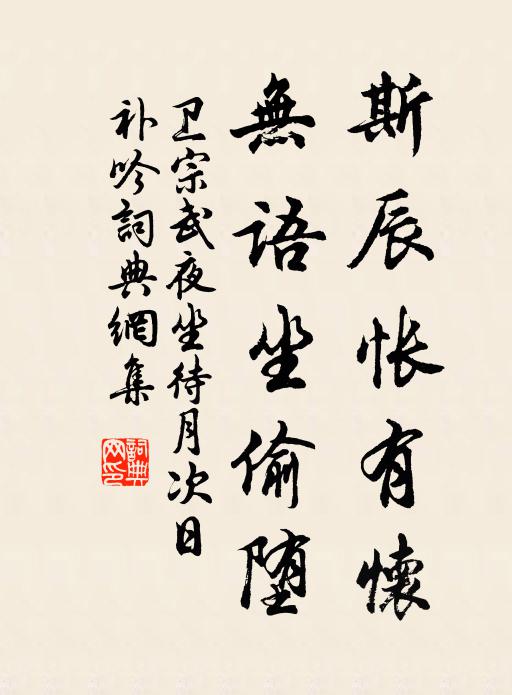 斯辰怅有懷
無語坐偷堕
卫宗武夜坐待月次日
补吟詞典網集
詞典
网印